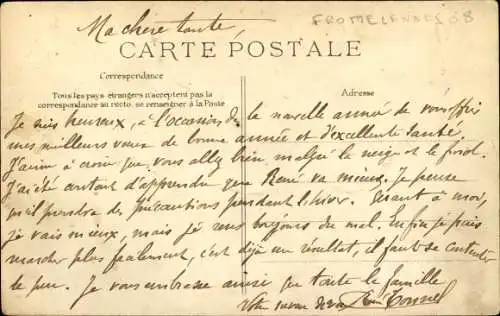 Ma chère tante,
FROMELENNES 08
CARTE POSTALE
Correspondance
Tous les pays étrangers n'acceptent pas la
correspondance au recto, se renseigner à la Poste
Adresse
Je suis heureux, à l'occasion de la nouvelle année de vous offrir
mes meilleurs voeux de bonne année et d'excellente santé.
J'aime à croire que vous allez bien, malgré la neige et le froid.
J'ai été content d'apprendre que René va mieux. Je pense
qu'il prendra des précautions pendant l'hiver. Quant à moi,
je vais mieux, mais je sens toujours du mal. Enfin je puis
marcher plus facilement, c'est déjà un résultat, il faut se contenter
de peu. Je vous embrasse ainsi que toute la famille
Votre neveu